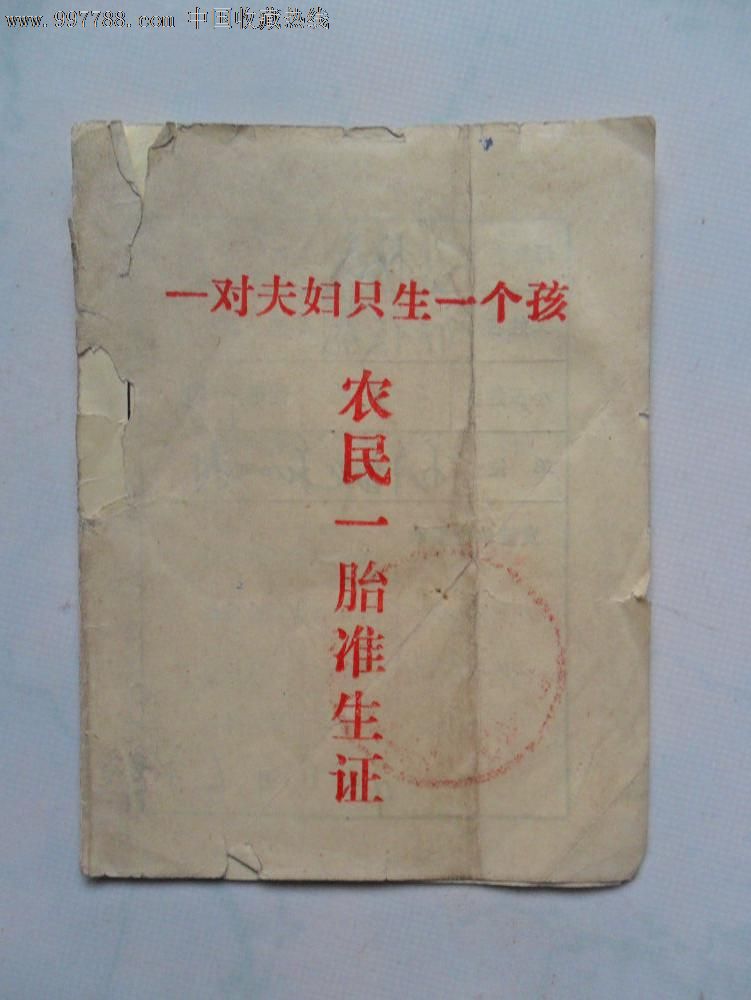 www.997788.com 中国收藏热线
一对夫妇只生一个孩
农民一胎准生证